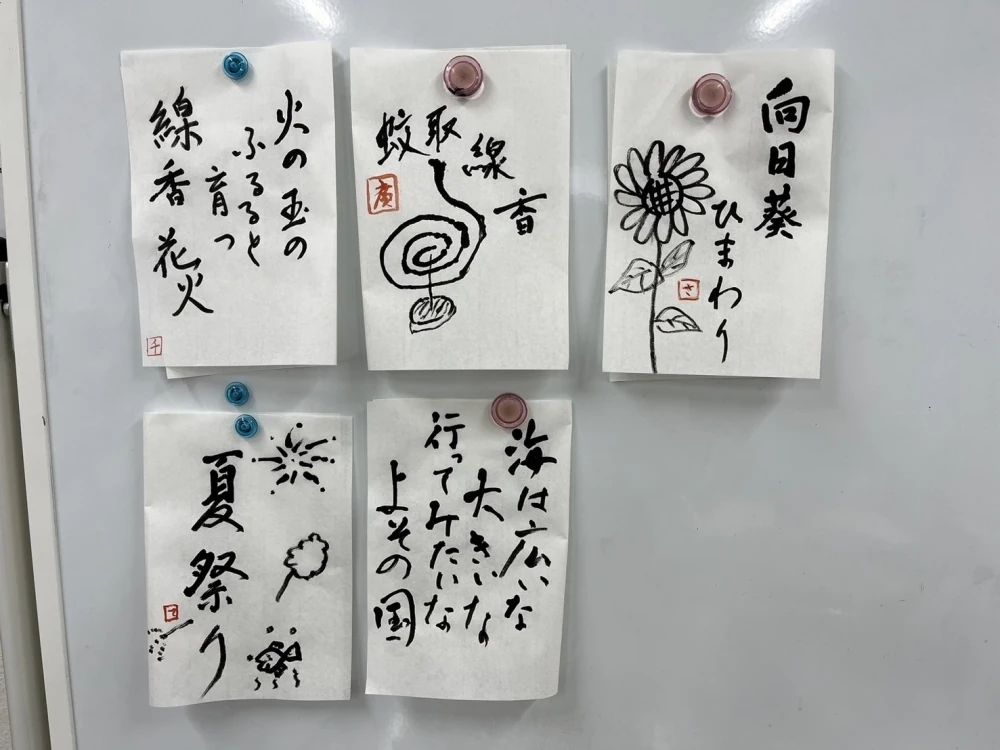 火の玉の
ふるると
育つ
線香花火
千
蚊取線香
廣
向日葵
ひまわり
さ
夏祭り
て
海は広いな
大きいな
行ってみたいな
よその国